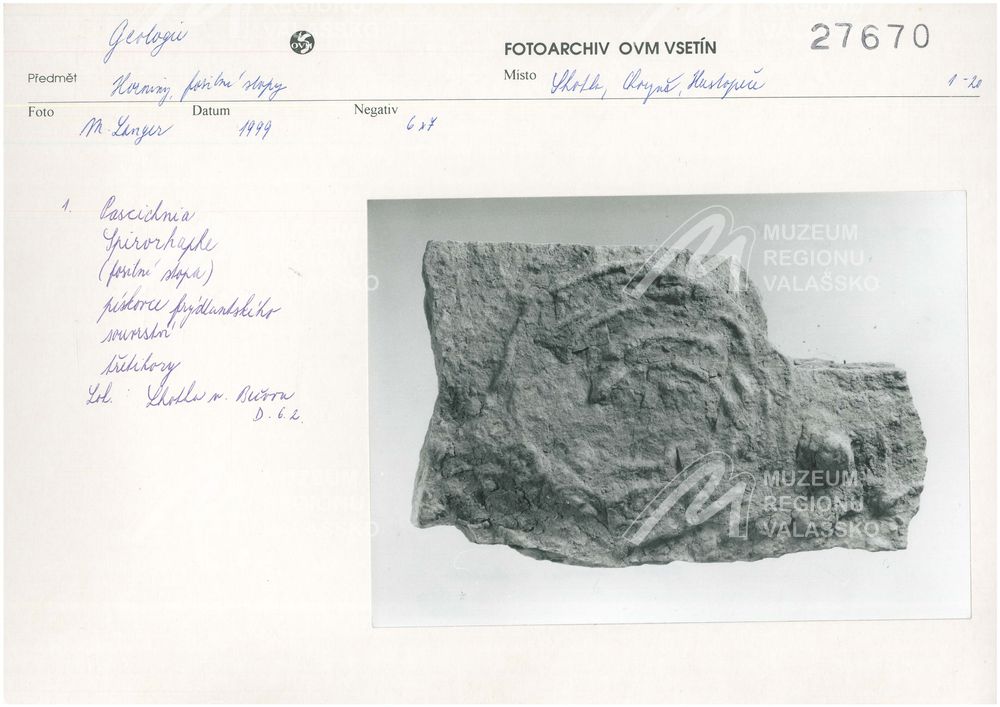 Geologie
OVM
FOTOARCHIV OVM VSETÍN
27670
Předmět Horniny, fosilní stopy
Místo Lhotka, Choryně, Hustopeče 1-20
Foto M. Langer
Datum 1999
Negativ 6x7
1. Pascichnia
Spirorhaphe
(fosilní stopa)
pískovce frýdlantského
souvrství
třetihory
Lok. : Lhotka n. Bečvou
D. 6. 2.
MUZEUM
REGIONU
VALAŠSKO
MUZEUM
REGIONU
VALAŠSKO